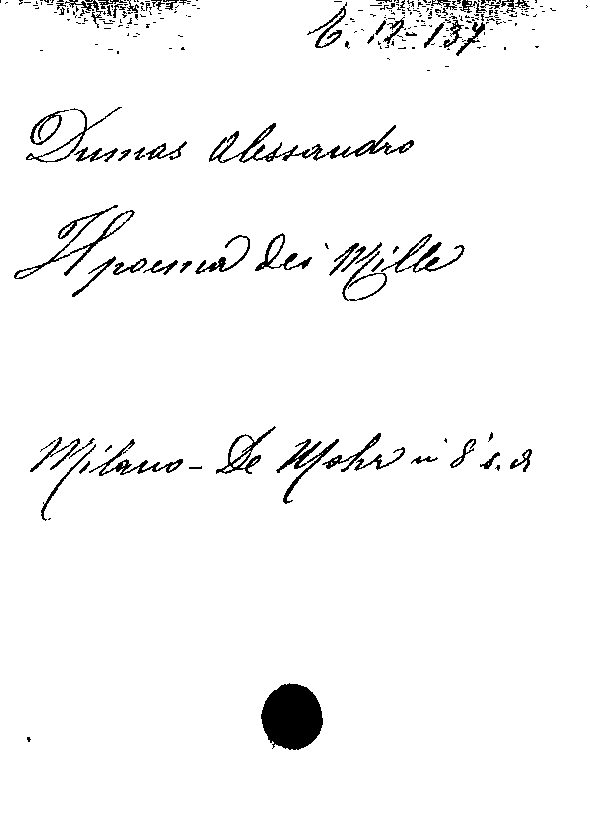 6. 12-137
Dumas Alessandro
Il poema dei Mille
Milano - De Mohr in 8° s. a